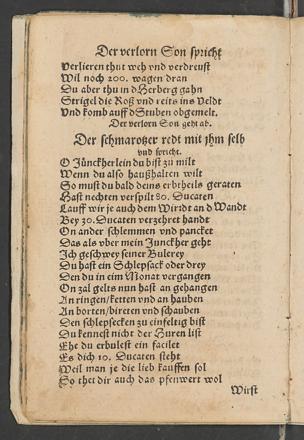 Der verlorn Son spricht
Verlieren thut weh vnd verdreust
Wil noch 200. wagen dran
Du aber thu in d Herberg gahn
Strigel die Roß vnd reits ins Veldt
Vnd komb auff d Stuben obgemelt.
Der verlorn Son geht ab.
Der schmarotzer redt mit jhm selb
vnd spricht.
O Jünckherlein du bist zu milt
Wenn du also haußhalten wilt
So must du bald deins erbtheils geraten
Hast nechten verspilt 80. Ducaten
Lauff wir je auch dem Wirdt an d Wandt
Bey 30. Ducaten verzehret handt
On ander schlemmen vnd pancket
Das als vber mein Junckher geht
Ich geschwey seiner Bulerey
Du hast ein Schlepsack oder drey
Den du in eim Monat vergangen
On zal gelts nun hast an gehangen
An ringen/ketten vnd an hauben
An borten/bireten vnd schauben
Den schlepsecken zu einfeltig bist
Du kennest nicht der Huren list
Ehe du erbulest ein facilet
Es dich 10. Ducaten steht
Weil man je die lieb kauffen sol
So thet dir auch das pfenwert wol
Wirst